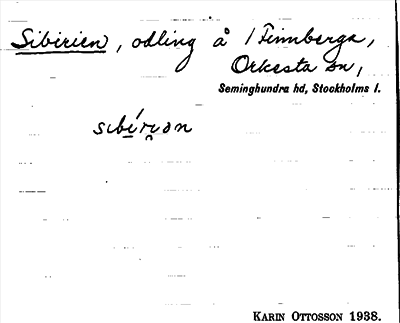 Sibirien, odling å 1 Finnberga,
Orkesta sn,
Seminghundra hd, Stockholms l.
sibírian
KARIN OTTOSSON 1938.